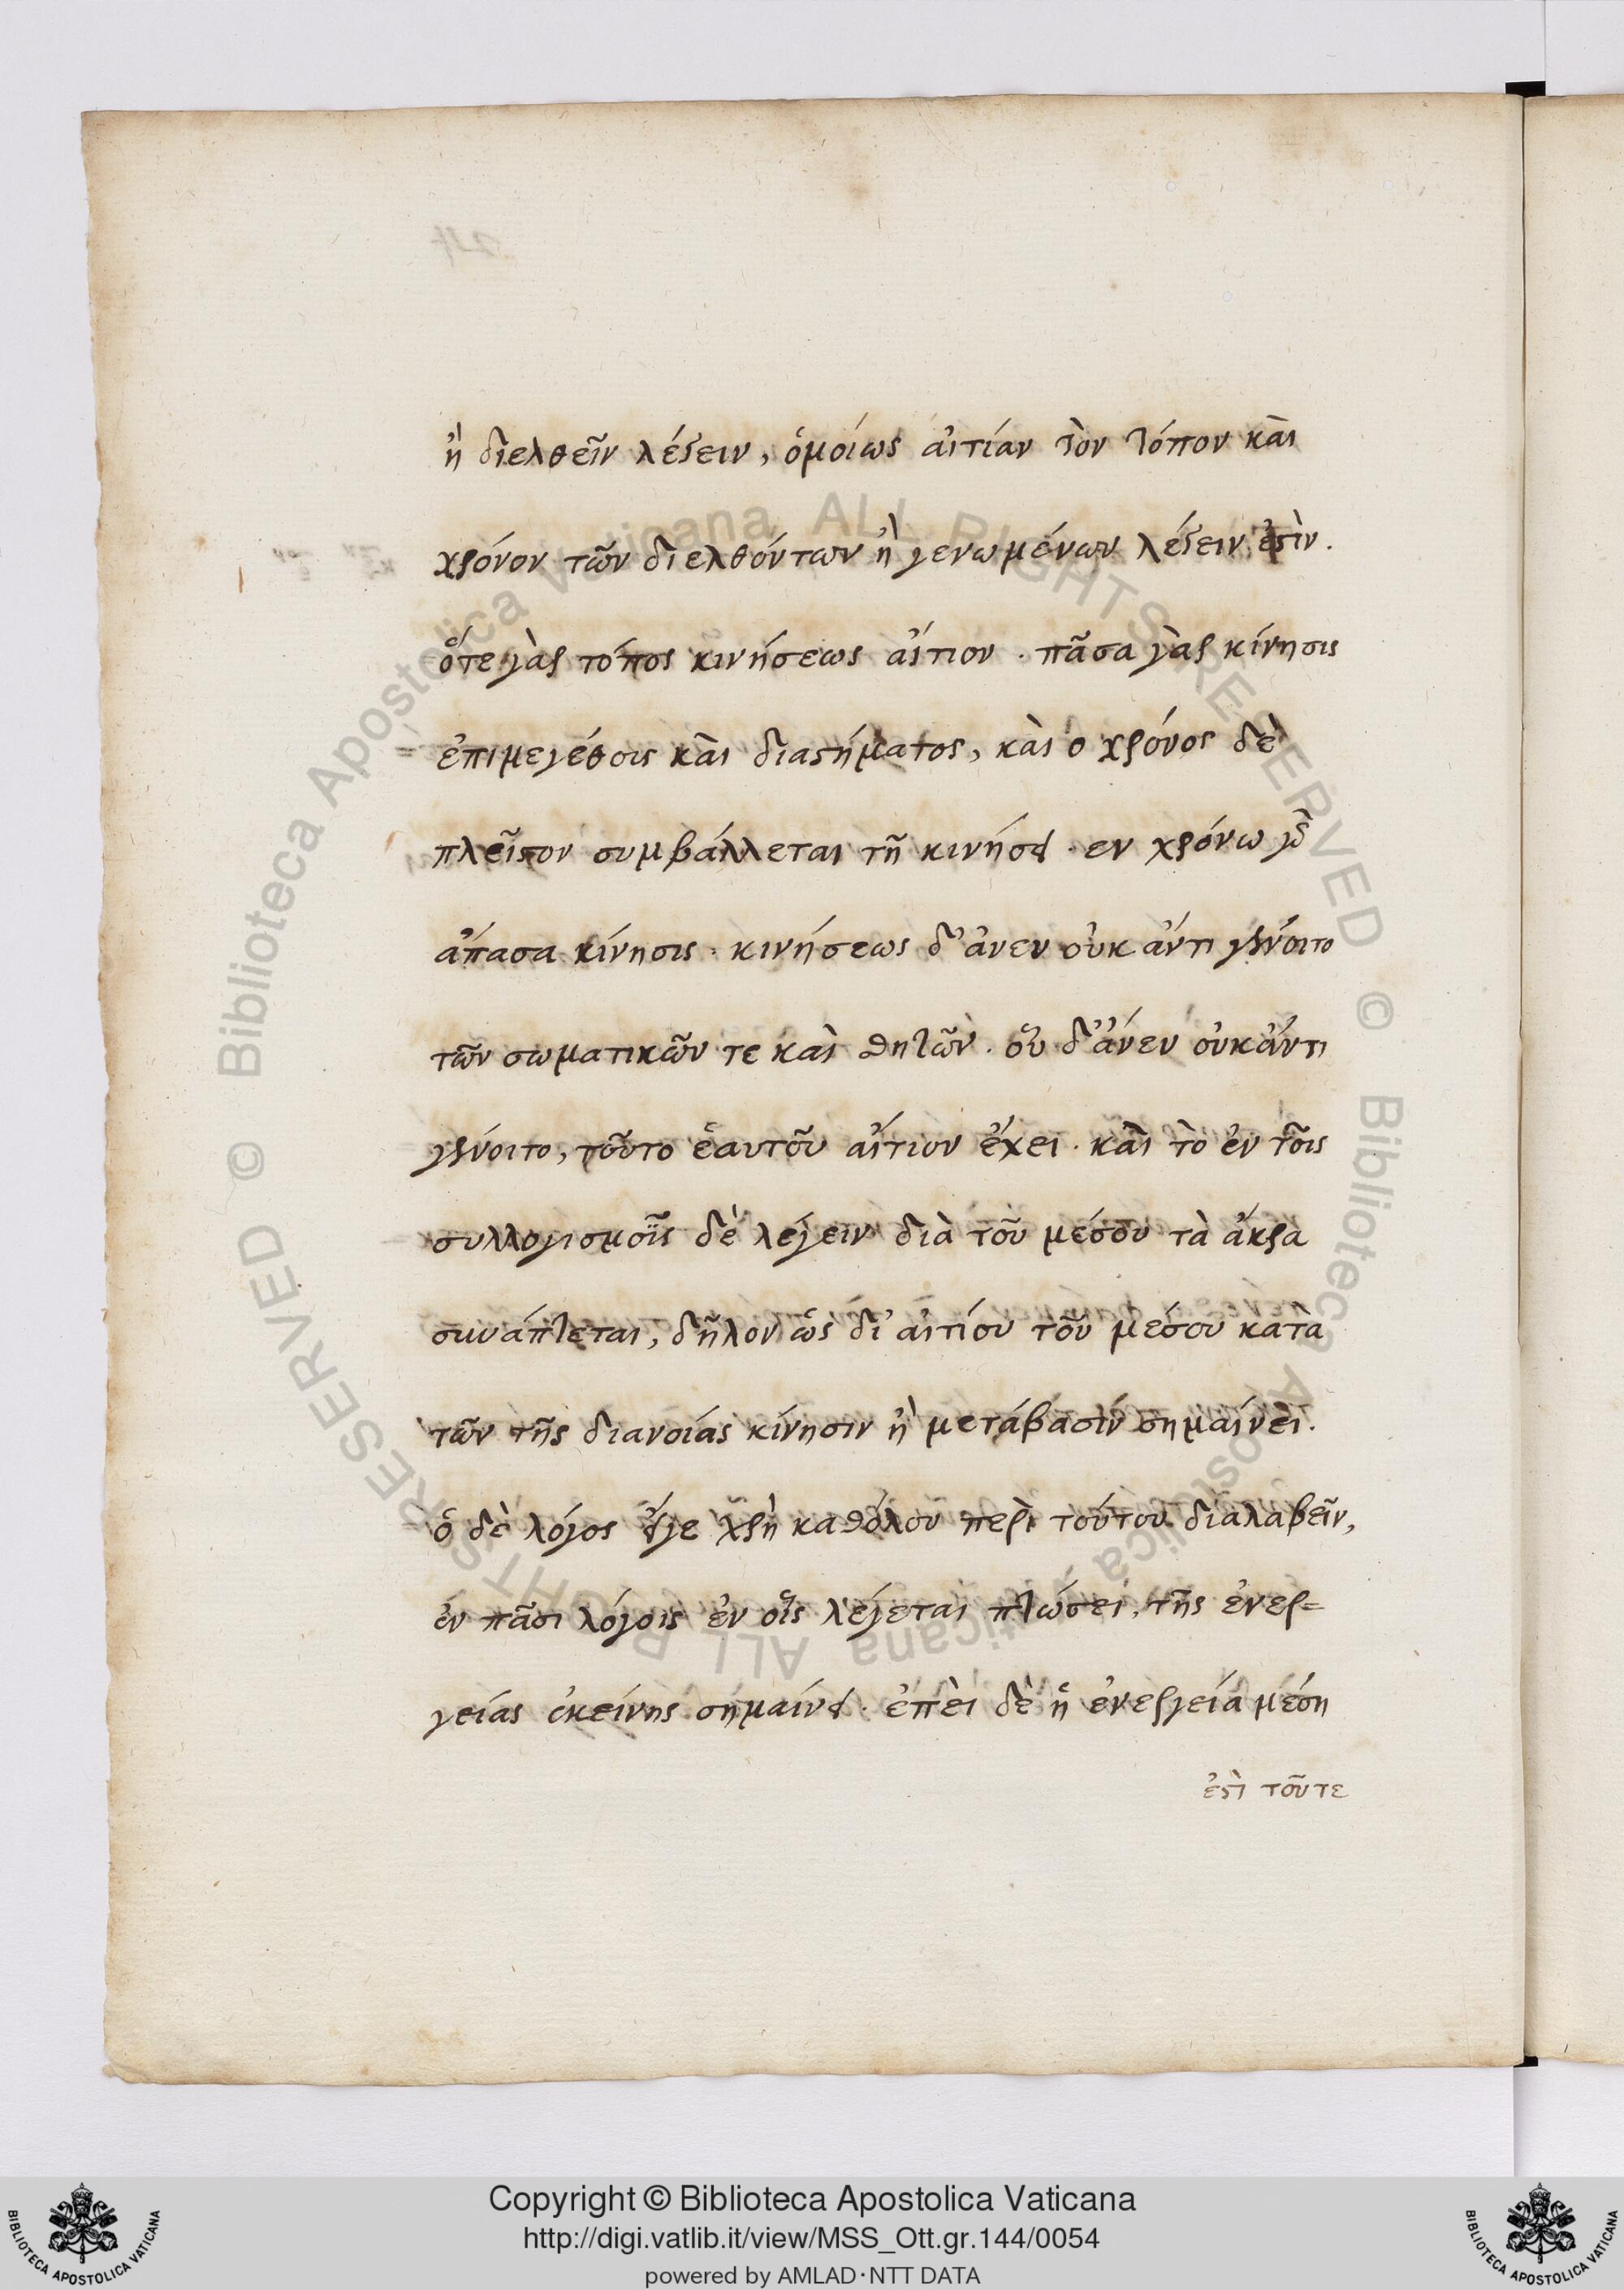 ἢ διελθεῖν λέγειν, ὁμοίως αἰτίαν τὸν τόπον καὶ
χρόνον τῶν διελθόντων ἢ γενωμένων λέγειν ἐστὶν.
ὅτε γὰρ τόπος κινήσεως αἴτιον. πᾶσα γὰρ κίνησις
ἐπιμεγέθοις καὶ διαστήματος, καὶ ὁ χρόνος δὲ
πλεῖστον συμβάλλεται τῇ κινήσει. εν χρόνω γὰρ
ἅπασα κίνησις. κινήσεως δ' ἄνευ οὐκ ἄντι γένοιτο
τῶν σωματικῶν τε καὶ θητῶν. οὗ δ' ἄνευ οὐκ ἄντι
γένοιτο, τοῦτο ἑαυτοῦ αἴτιον ἔχει. καὶ τὸ ἐν τοῖς
συλλογισμοῖς δὲ λέγειν διὰ τοῦ μέσου τὰ ἄκρα
συνάπτεται, δῆλον ὡς δι' αἰτίου τοῦ μέσου κατὰ
τῶν τῆς διανοίας κίνησιν ἢ μετάβασιν σημαίνει.
ὁ δὲ λόγος χρὴ καθόλου περὶ τούτου διαλαβεῖν,
ἐν πᾶσι λόγοις ἐν οἷς λέγεται πτώσει, τῆς ἐνερ=
γείας ἐκείνης σημαίνει. ἐπεὶ δὲ ἡ ἐνεργεία μέση
ἐστὶ τοῦτε
© Biblioteca Apostolica Vaticana ALL RIGHTS RESERVED © Biblioteca Apostolica Vaticana ALL RIGHTS RESERVED
Copyright © Biblioteca Apostolica Vaticana
http://digi.vatlib.it/view/MSS_Ott.gr.144/0054
powered by AMLAD·NTT DATA
BIBLIOTECA APOSTOLICA VATICANA
BIBLIOTECA APOSTOLICA VATICANA